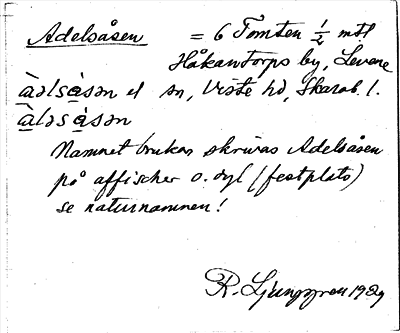 Adelsåsen = 6 Tomten ½ mtl
Håkantorps by, Levene
àdəlsàsən el sn, Viste hd, Skarab. l.
àləsàsən
Namnet brukar skrivas Adelsåsen
på affischer o. dyl (festplats)
se naturnamnen!
R. Ljunggren 1929